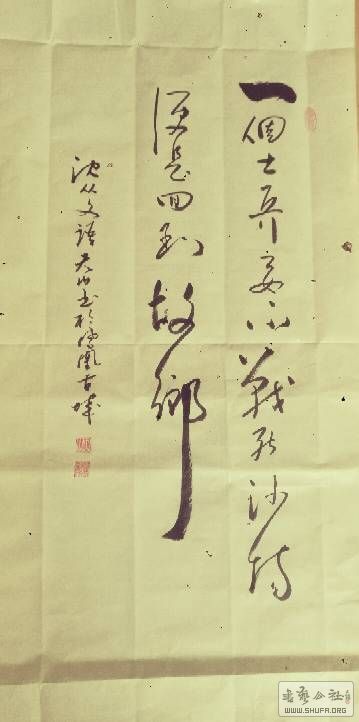 一個士兵要不戰死沙場
便是回到故鄉
沈从文語 山书於鳳凰古城
书艺公社
WWW.SHUFA.ORG